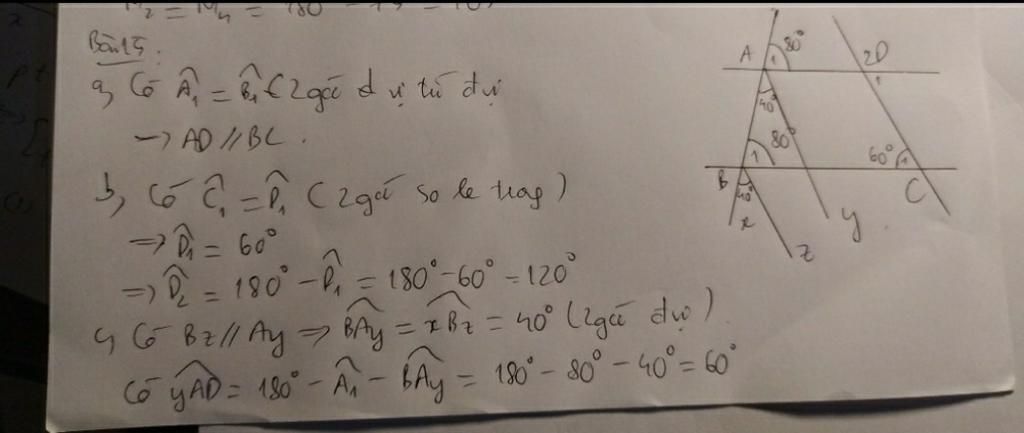 M̂₂ = M̂₄ = 180° - 75 = 105
Bài 15:
a, Có Â₁ = B̂₁ (2 góc ở vị trí đ vị
→ AD // BC.
b, Có Ĉ₁ = D̂₁ (2 góc so le trog)
⇒ D̂₁ = 60°
⇒ D̂₂ = 180° - D̂₁ = 180° - 60° = 120°
c, Có Bz // Ay ⇒ BAy = xBz = 40° (2 góc đ vị)
Có yAD = 180° - Â₁ - BAy = 180° - 80° - 40° = 60°
A 80° 2 D
1 1
40°
80° 60°
1 1
B C
40°
x y
z